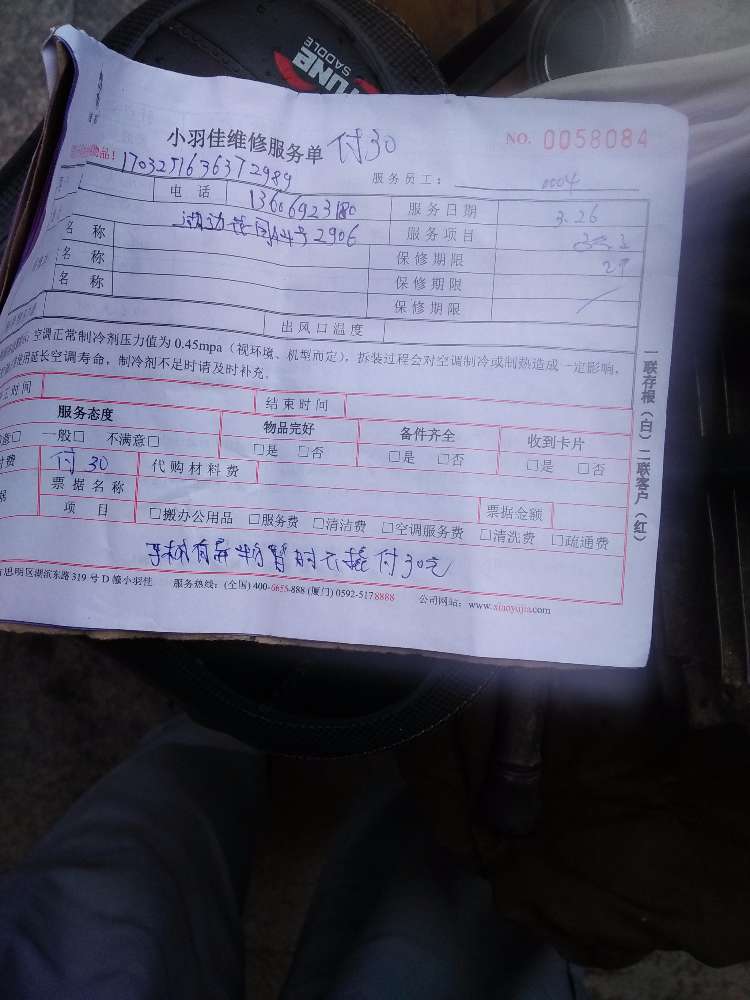 TUNE
SADDLE
小羽佳维修服务单 付30
NO. 0058084
物品！ 1703251636372989
服务员工： 0004
电话 13606923180 服务日期 3.26
名称 湖边花园 号2906 服务项目
名称 保修期限
名称 保修期限
保修期限
出风口温度
空调正常制冷剂压力值为 0.45mpa（视环境、机型而定），拆装过程会对空调制冷或制热造成一定影响，
延长空调寿命，制冷剂不足时请及时补充。
时间 结束时间
服务态度 物品完好 备件齐全 收到卡片
□ 一般□ 不满意□ □是 □否 □是 □否 □是 □否
费 付30 代购材料费
票据名称 票据金额
项目 □搬办公用品 □服务费 □清洁费 □空调服务费 □清洗费 □疏通费
付30元
思明区湖滨东路 319 号 D 幢小羽佳 服务热线：(全国) 400-6655-888 (厦门) 0592-5178888 公司网站：www.xiaoyujia.com
一联存根（白）二联客户（红）